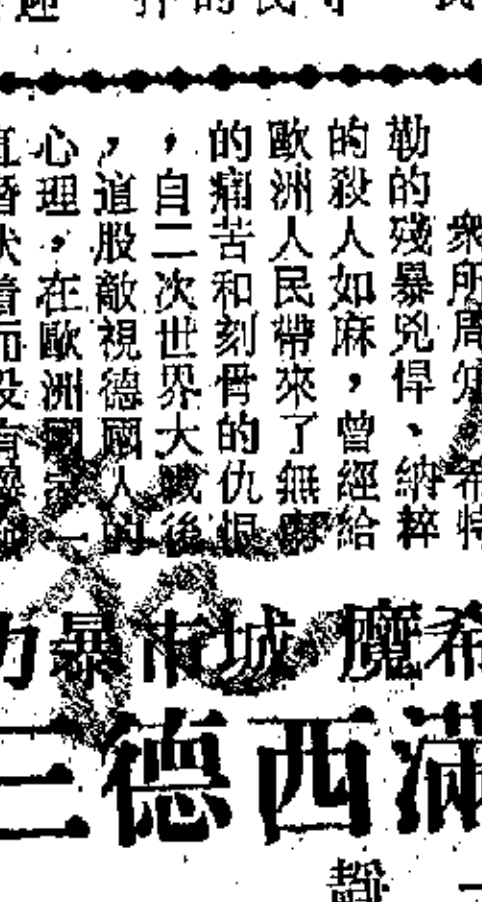 衆所周知，希特
勒的殘暴兇悍、納粹
的殺人如麻，曾經給
歐洲人民帶來了無窮
的痛苦和刻骨的仇恨
，自二次世界大戰後
，這股敵視德國人的
心理，在歐洲國家一
希魔 城市暴力
滿西德三
靜